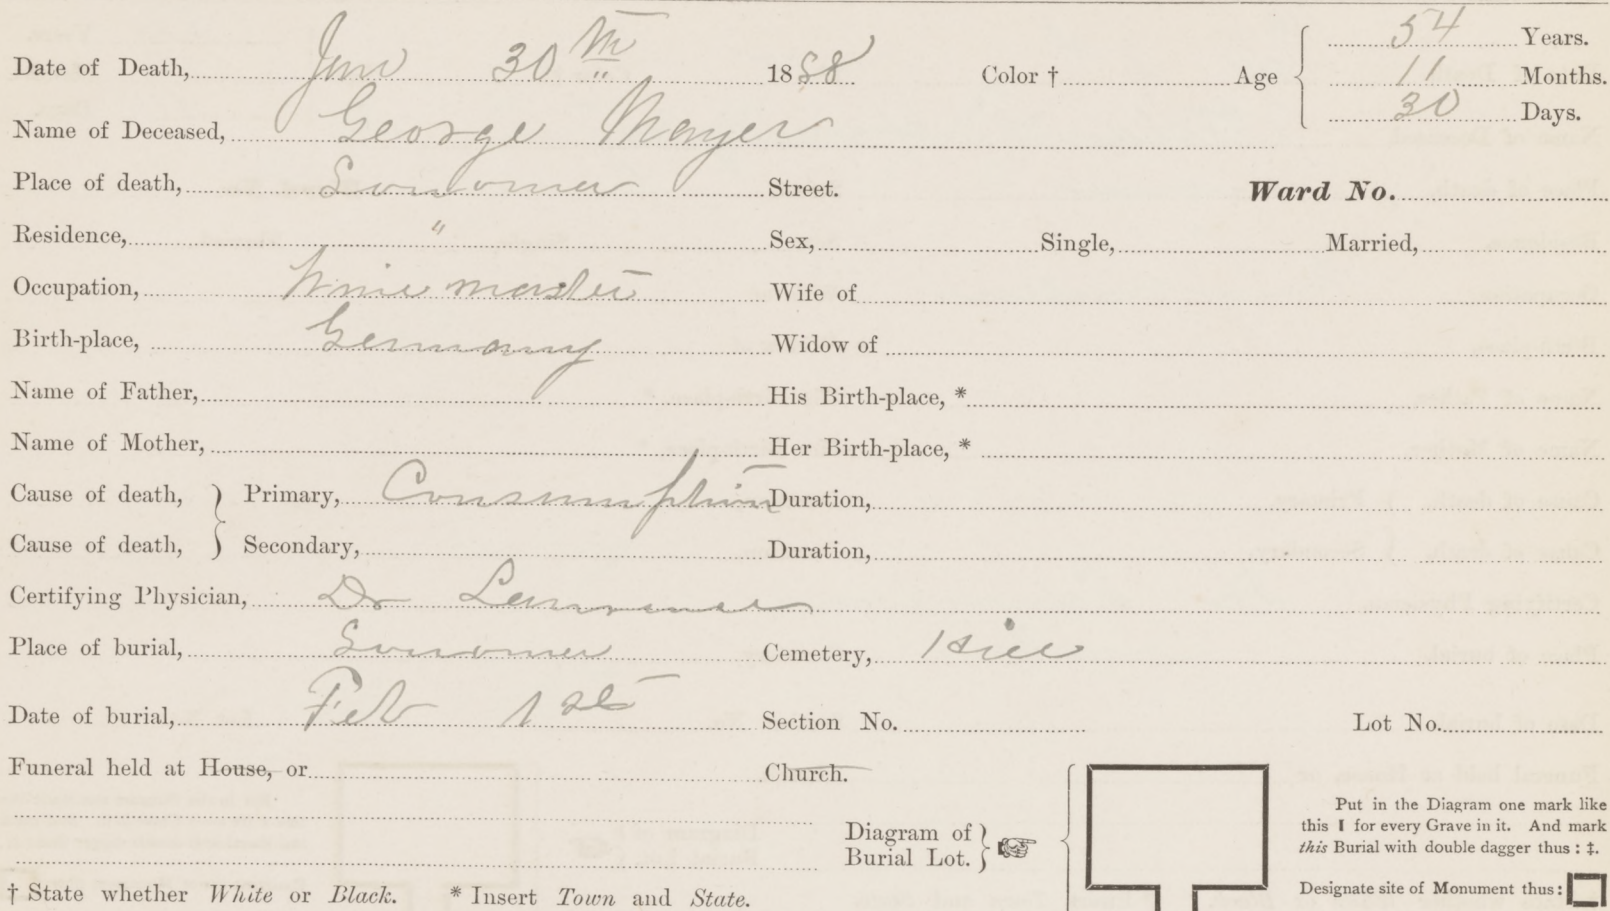 54 Years.
Date of Death, Jan 30th 1888 Color † Age 11 Months.
30 Days.
Name of Deceased, George Mayer
Place of death, Sonoma Street. Ward No.
Residence, " Sex, Single, Married,
Occupation, Wine master Wife of
Birth-place, Germany Widow of
Name of Father, His Birth-place, *
Name of Mother, Her Birth-place, *
Cause of death, } Primary, Consumption Duration,
Cause of death, } Secondary, Duration,
Certifying Physician, Dr
Place of burial, Sonoma Cemetery, Hill
Date of burial, Feb 1st Section No. Lot No.
Funeral held at House, or Church.
Diagram of Burial Lot. }
Put in the Diagram one mark like
this I for every Grave in it. And mark
this Burial with double dagger thus : ‡.
Designate site of Monument thus:
† State whether White or Black. * Insert Town and State.